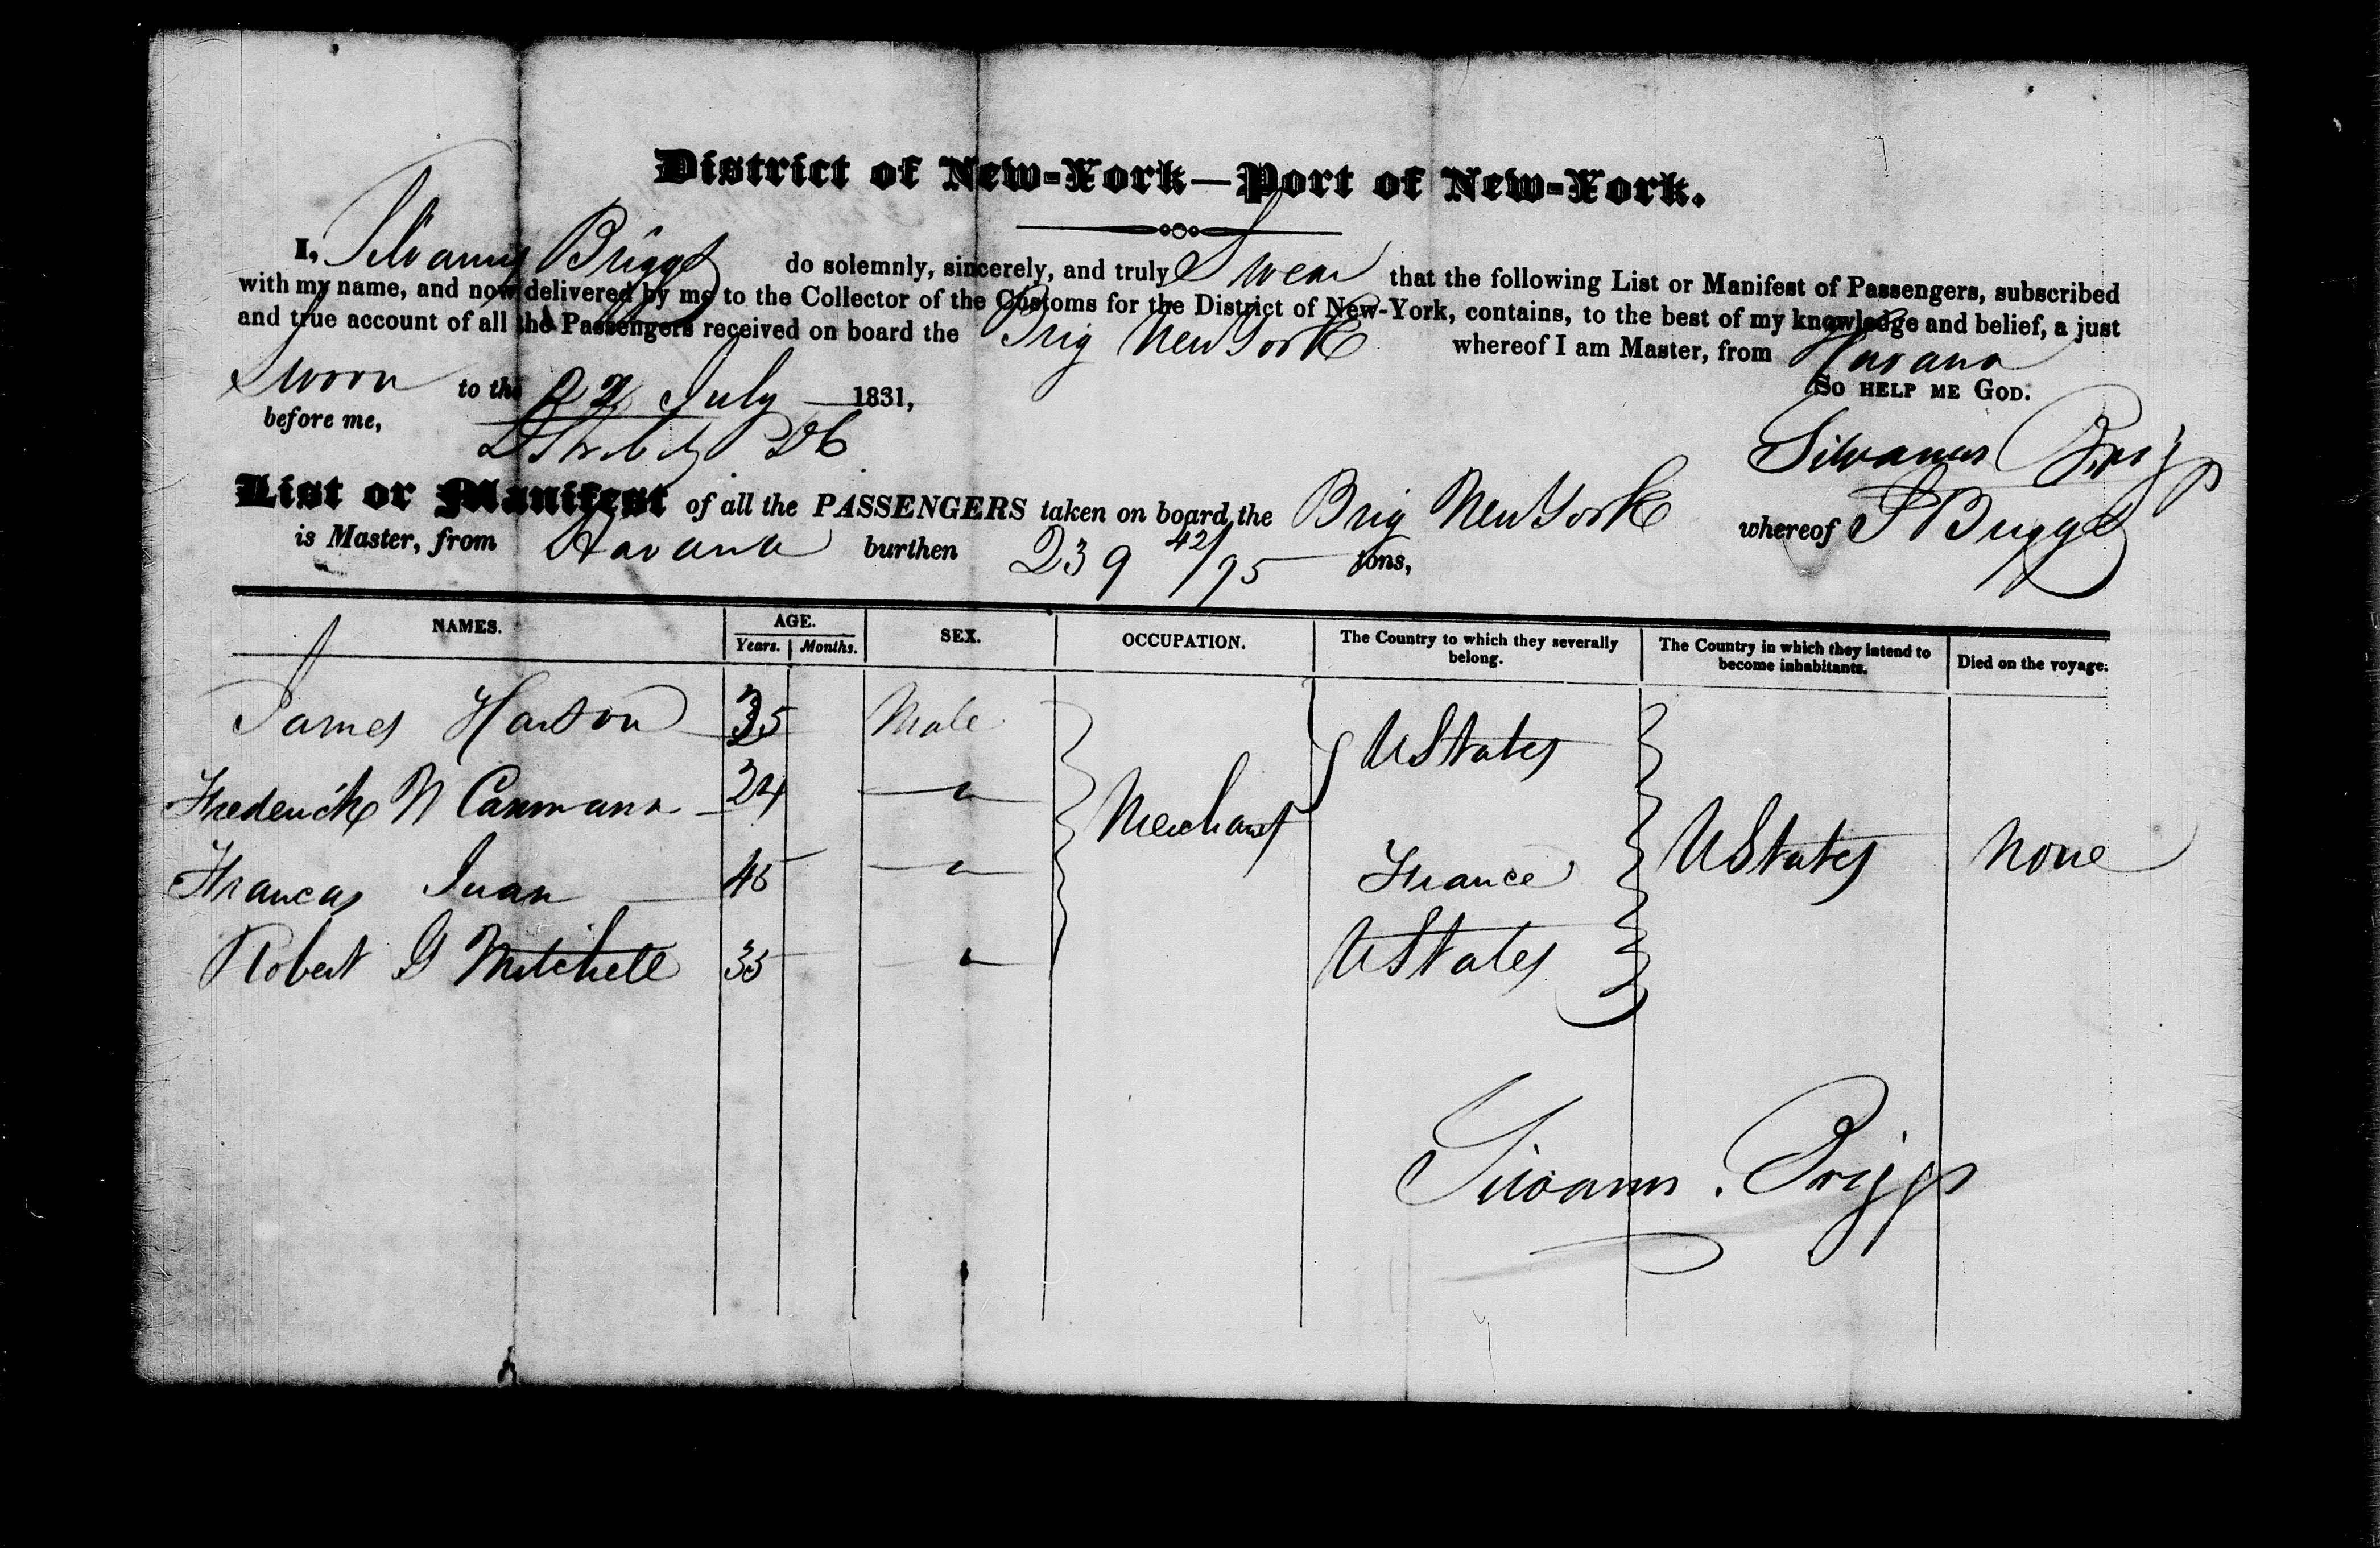 District of New-York—Port of New-York.
I, Silvanus Briggs do solemnly, sincerely, and truly Swear that the following List or Manifest of Passengers, subscribed
with my name, and now delivered by me to the Collector of the Customs for the District of New-York, contains, to the best of my knowledge and belief, a just
and true account of all the Passengers received on board the Brig New York whereof I am Master, from Havana
Sworn to the 22 July 1831, So help me God.
before me,
Silvanus Briggs
List or Manifest of all the PASSENGERS taken on board the Brig New York whereof S Briggs
is Master, from Havana burthen 239 42/95 tons,
NAMES. AGE. Years. Months. SEX. OCCUPATION. The Country to which they severally belong. The Country in which they intend to become inhabitants. Died on the voyage.
James 35 Male U States
Frederick W 24 "
Merchant
45 " France U States none
Robert G Mitchell 35 " U States
Silvanus Briggs